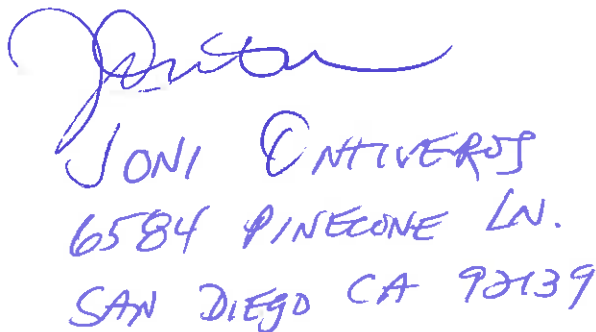 JONI ONTIVEROS
6584 PINECONE LN.
SAN DIEGO CA 92139